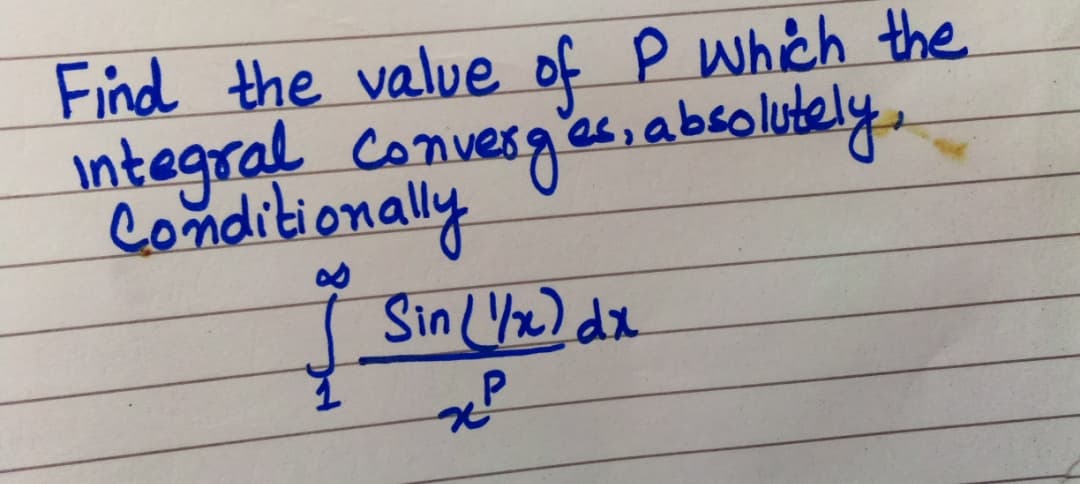 Find the value of P which the
integral converges, absolutely,
Conditionally
∞
∫ Sin(1/x) dx
1
x^P